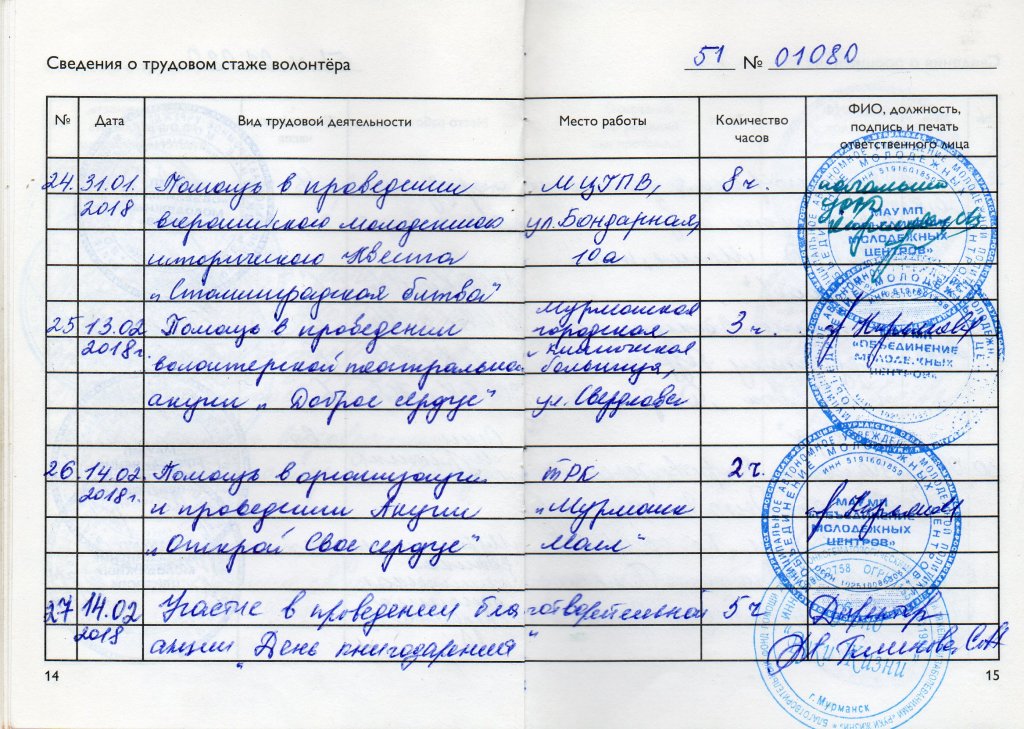 Сведения о трудовом стаже волонтёра
51 № 01080
№ Дата Вид трудовой деятельности Место работы Количество часов ФИО, должность, подпись и печать ответственного лица
24. 31.01. Помощь в проведении МЦГПВ, 8 ч.
2018 всероссийского молодежного ул. Бондарная,
исторического Квеста 10а
"Сталинградская битва"
25 13.02 Помощь в проведении Мурманская городская 3 ч.
2018г. волонтерской театральной клиническая
акции "Доброе сердце" больница, ул. Свердлова
26. 14.02 Помощь в организации ТРК 2 ч.
2018г. и проведении Акции "Мурманск
"Открой Свое сердце" Молл"
27 14.02 Участие в проведении благотворительной 5 ч. Директор
2018 акции "День книгодарения"
МАУ МП
МОЛОДЕЖНЫХ
ЦЕНТРОВ»
«ОБЪЕДИНЕНИЕ
МОЛОДЕЖНЫХ
ЦЕНТРОВ»
МАУ МП
«ОБЪЕДИНЕНИЕ
МОЛОДЕЖНЫХ
ЦЕНТРОВ»
г. Мурманск
14
15